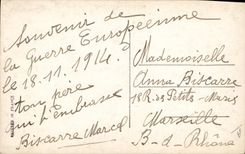 Souvenir de
la Guerre Européenne
le 18.11.1914.
ton père
qui t'embrasse
Biscarre Marcel
Mademoiselle
Anna Biscarre
18 R. des Petits-Maries
Marseille
B-d-Rhône